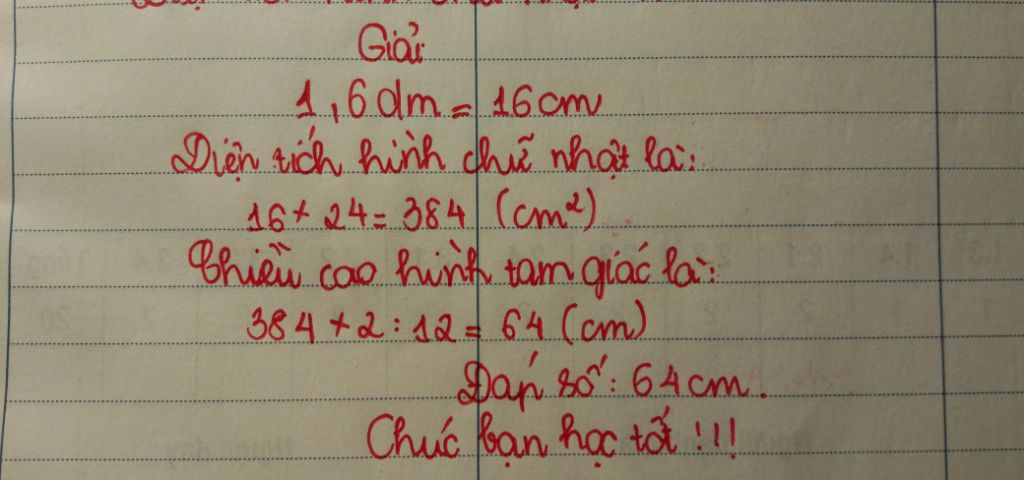 Giải
1,6dm = 16cm
Diện tích hình chữ nhật là:
16 × 24 = 384 (cm²)
Chiều cao hình tam giác là:
384 × 2 : 12 = 64 (cm)
Đáp số: 64cm.
Chúc bạn học tốt!!!